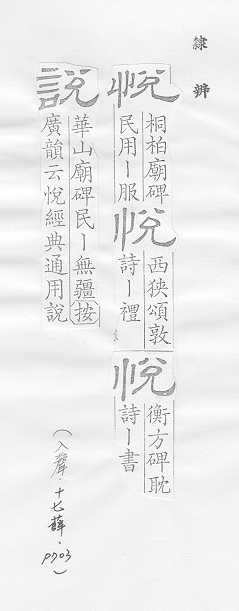 隸辨
悅
桐柏廟碑
民用丨服
悅
西狹頌敦
詩丨禮
悅
衡方碑耽
詩丨書
說
華山廟碑民丨無疆按
廣韻云悅經典通用說
(入聲．十七薛．
P703)